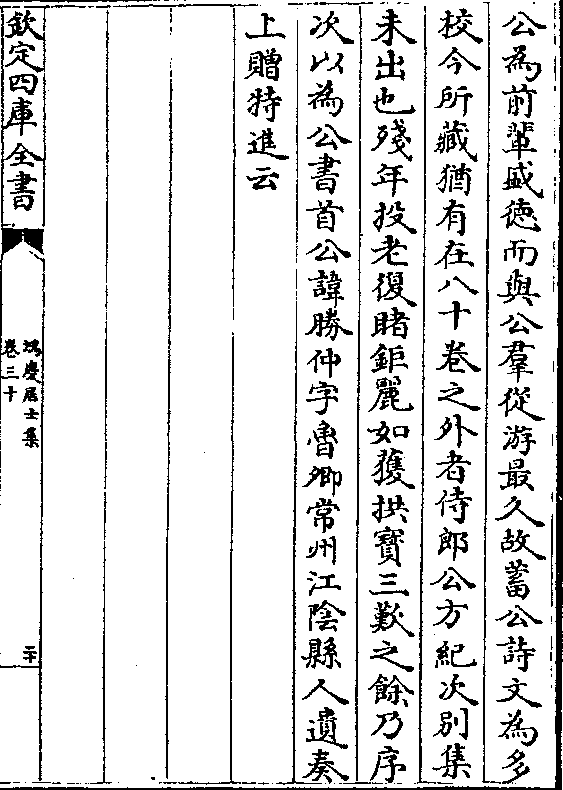 公為前輩盛徳而與公羣從游最久故蓄公詩文為多
校今所藏猶有在八十卷之外者侍郎公方紀次别集
未出也殘年投老復睹鉅麗如獲拱寳三歎之餘乃序
次以為公書首公諱勝仲字魯卿常州江陰縣人遺奏
上贈特進云
欽定四庫全書
鴻慶居士集
卷三十
二十